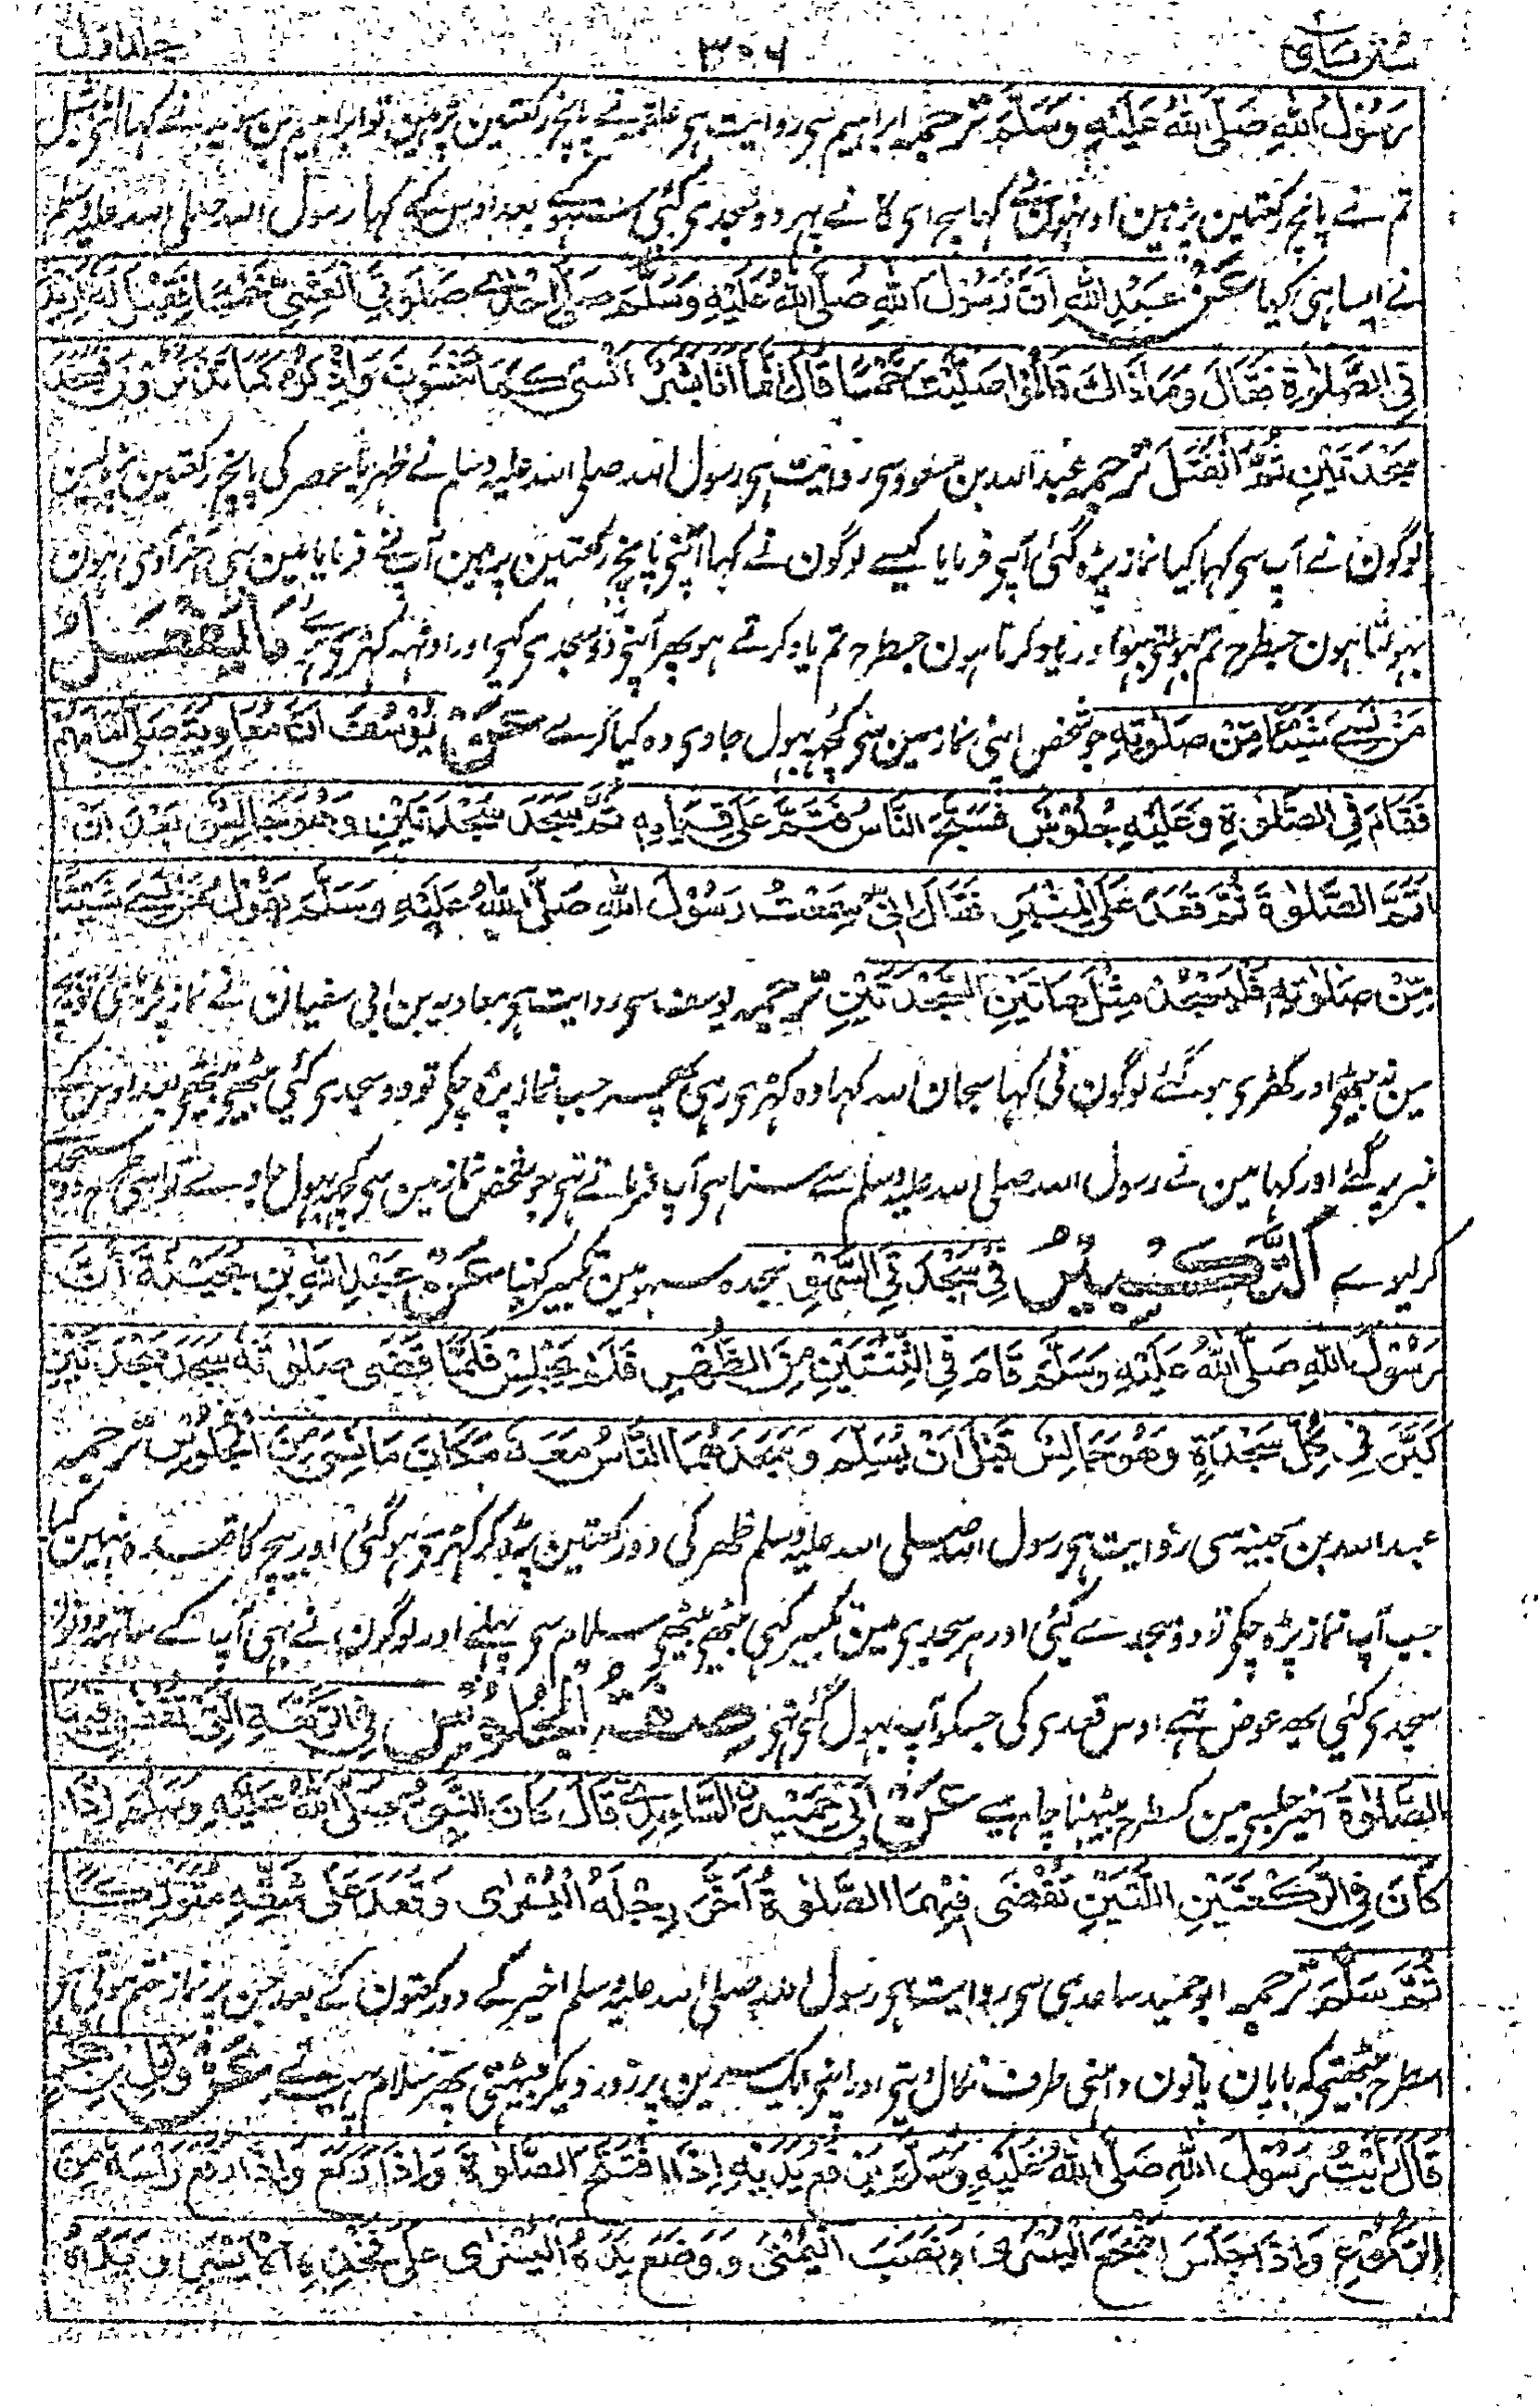 سنن نسائی ۳۰۶ جلد اول
رَسُوْلُ اللهِ صَلَّى اللهُ عَلَيْهِ وَسَلَّمَ ترجمہ ابراہیم سی روایت ہی علقمہ نے پانچ رکعتین پڑھین تو ابراہیم بن سوید نے کہا
تم نے پانچ رکعتین پڑہین اونہون نے کہا سچ ای کانے پہر دو سجدی کئی سہو کے بعد اوس کے کہا رسول اللہ صلی اللہ علیہ وسلم
نے ایسا ہی کیا عَنْ عَبْدِ اللهِ اَنَّ رَسُوْلَ اللهِ صَلَّى اللهُ عَلَيْهِ وَسَلَّمَ صَلَّى اِحْدٰى صَلٰوتَيِ الْعَشِيِّ خَمْسًا فَقِيْلَ لَهُ اَزِيْدَ
فِي الصَّلٰوةِ فَقَالَ وَمَا ذَاكَ قَالُوْا صَلَّيْتَ خَمْسًا قَالَ اِنَّمَا اَنَا بَشَرٌ اَنْسٰى كَمَا تَنْسَوْنَ وَاَذْكُرُ كَمَا تَذْكُرُوْنَ فَسَجَدَ
سَجْدَتَيْنِ ثُمَّ انْفَتَلَ ترجمہ عبد اللہ بن مسعود سی روایت ہی رسول اللہ صلی اللہ علیہ وسلم نے ظہر یا عصر کی پانچ رکعتین پڑہین
لوگون نے آپ سی کہا کیا نماز بڑہ گئی آپنے فرمایا کیسے لوگون نے کہا آپنی پانچ رکعتین پڑہین آپ نے فرمایا مین بہی آخر آدمی ہون
بہولتا ہون جسطرح تم بہولتی ہو اور یاد کرتا ہون جسطرح تم یاد کرتے ہو پھر آپنی دو سجدی کیی اور اوٹہہ کہڑی ہوئے مَا يَفْعَلُ
مَنْ نَسِيَ شَيْئًا مِنْ صَلٰوتِهِ جو شخص اپنی نماز مین سی کچہہ بہول جاوی وہ کیا کرے عَنْ يُوْسُفَ اَنَّ مُعَاوِيَةَ صَلّٰى اَمَامَهُمْ
فَقَامَ فِي الصَّلٰوةِ وَعَلَيْهِ جُلُوْسٌ فَسَبَّحَ النَّاسُ فَتَمَّ عَلٰى قِيَامِهِ ثُمَّ سَجَدَ سَجْدَتَيْنِ وَهُوَ جَالِسٌ بَعْدَ اَنْ
اَتَمَّ الصَّلٰوةَ ثُمَّ قَعَدَ عَلَى الْمِنْبَرِ فَقَالَ اِنِّيْ سَمِعْتُ رَسُوْلَ اللهِ صَلَّى اللهُ عَلَيْهِ وَسَلَّمَ يَقُوْلُ مَنْ نَسِيَ شَيْئًا
مِّنْ صَلٰوتِهِ فَلْيَسْجُدْ مِثْلَ هَاتَيْنِ السَّجْدَتَيْنِ ترجمہ یوسف سی روایت ہی معاویہ بن ابی سفیان نے نماز پڑہائی تو بیچ
مین نہ بیٹہی اور کھڑی ہو گئے لوگون نی کہا سبحان اللہ کہا وہ کہڑی رہی پھر جب نماز پڑہ چکی تو دو سجدی کئی بیٹہی بیٹہی بعد اوس کے
منبر پر گئے اور کہا مین نے رسول اللہ صلی اللہ علیہ وسلم سے سنا ہی آپ فرماتے تہی جو شخص نماز مین سی کچہہ بہول جاوے تو اسی طرح دو سجدے
کر لیوے اَلتَّكْبِيْرُ فِيْ سَجْدَتَيِ السَّهْوِ سجدہ سہو مین تکبیر کہنا عَنْ عَبْدِ اللهِ بْنِ بُحَيْنَةَ اَنَّ
رَسُوْلَ اللهِ صَلَّى اللهُ عَلَيْهِ وَسَلَّمَ قَامَ فِي الثِّنْتَيْنِ مِنَ الظُّهْرِ فَلَمْ يَجْلِسْ فَلَمَّا قَضٰى صَلٰوتَهُ سَجَدَ سَجْدَتَيْنِ
كَبَّرَ فِيْ كُلِّ سَجْدَةٍ وَهُوَ جَالِسٌ قَبْلَ اَنْ يُسَلِّمَ وَسَجَدَهُمَا النَّاسُ مَعَهُ مَكَانَ مَا نَسِيَ مِنَ الْجُلُوْسِ ترجمہ
عبد اللہ بن بحینہ سی روایت ہی رسول اللہ صلی اللہ علیہ وسلم ظہر کی دو رکعتین پڑہ کر کہڑی ہو گئی اور بیچ کا قعدہ نہین کیا
جب آپ نماز پڑہ چکی تو دو سجدے کیئی اور ہر سجدی مین تکبیر کہی بیٹہی بیٹہی سلام سی پہلے اور لوگون نے بہی آپ کے ساتہہ دونو
سجدی کئی یہہ عوض تہے اوس قعدی کی جسکو آپ بہول گئی تہی صِفَةُ الْجُلُوْسِ فِي الرَّكْعَةِ الَّتِيْ تُقْضٰى فِيْهَا
الصَّلٰوةُ اخیر جلسی مین کسطرح بیٹہنا چاہیے عَنْ اَبِيْ حُمَيْدِنِ السَّاعِدِيِّ قَالَ كَانَ النَّبِيُّ صَلَّى اللهُ عَلَيْهِ وَسَلَّمَ اِذَا
كَانَ فِي الرَّكْعَتَيْنِ اللَّتَيْنِ تُقْضٰى فِيْهِمَا الصَّلٰوةُ اَخَّرَ رِجْلَهُ الْيُسْرٰى وَقَعَدَ عَلٰى شِقِّهِ مُتَوَرِّكًا
ثُمَّ سَلَّمَ ترجمہ ابو حمید ساعدی سی روایت ہی رسول اللہ صلی اللہ علیہ وسلم اخیر کے دو رکعتون کے بعد جن پر نماز ختم ہوتی ہی
اسطرح بیٹھتی کہ بایان پانون داہنی طرف نکال دیتی اور اپنی ایک سرین پر زور دیکر بیٹہتی پھر سلام پہیرتے عَنْ وَائِلِ بْنِ حُجْرٍ
قَالَ رَاَيْتُ رَسُوْلَ اللهِ صَلَّى اللهُ عَلَيْهِ وَسَلَّمَ يَرْفَعُ يَدَيْهِ اِذَا افْتَتَحَ الصَّلٰوةَ وَاِذَا رَكَعَ وَاِذَا رَفَعَ رَاْسَهُ مِنَ
الرُّكُوْعِ وَاِذَا جَلَسَ اَضْجَعَ الْيُسْرٰى وَنَصَبَ الْيُمْنٰى وَوَضَعَ يَدَهُ الْيُسْرٰى عَلٰى فَخِذِهِ الْيُسْرٰى وَيَدَهُ